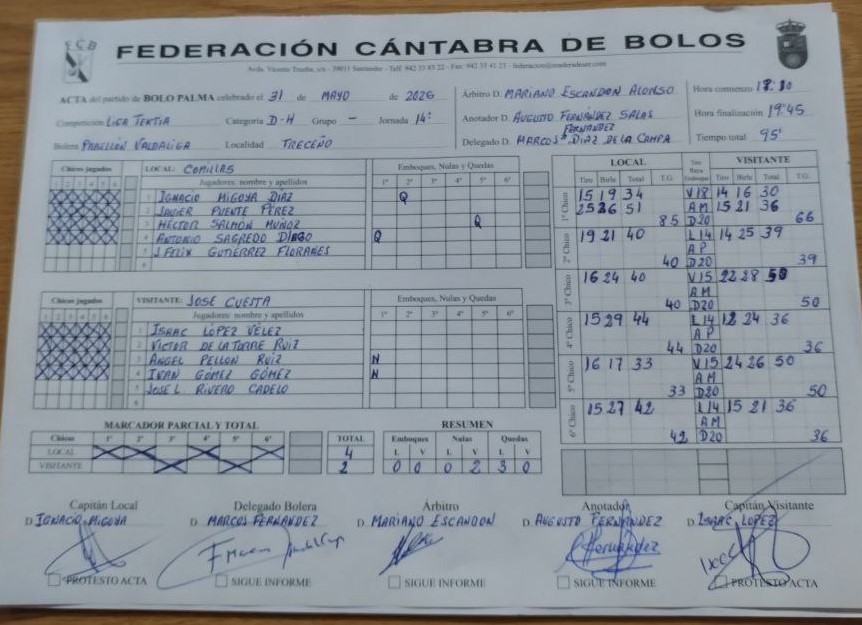 FCB
FEDERACIÓN CÁNTABRA DE BOLOS
Avda. Vicente Trueba, s/n - 39011 Santander - Telf. 942 33 85 22 - Fax: 942 33 41 23
ACTA del partido de BOLO PALMA celebrado el 31 de MAYO de 2026
Competición LIGA TEXTIA Categoría D-H Grupo - Jornada 14ª
Bolera PABELLÓN VALDALIGA Localidad TRECEÑO
Árbitro D. MARIANO ESCANDON ALONSO
Anotador D. AUGUSTO FERNÁNDEZ SALAS
FERNANDEZ
Delegado D. MARCOS DIAZ DE LA CAMPA
Hora comienzo
Hora finalización 19'45
Tiempo total 95'
Chicos jugados LOCAL: COMILLAS Emboques, Nulas y Quedas
1 2 3 4 5 6 Jugadores: nombre y apellidos 1ª 2ª 3ª 4ª 5ª 6ª
1 IGNACIO MIGOYA DIAZ Q
2 JAVIER PUENTE PÉREZ
3 HÉCTOR SALMÓN MUÑOZ Q
4 ANTONIO SAGREDO DIEGO Q
5 J. FELIX GUTIÉRREZ FLORANES
6
Chicos jugados VISITANTE: JOSE CUESTA Emboques, Nulas y Quedas
1 2 3 4 5 6 Jugadores: nombre y apellidos 1ª 2ª 3ª 4ª 5ª 6ª
1 ISAAC LÓPEZ VÉLEZ
2 VICTOR DE LA TORRE RUIZ
3 ANGEL PELLON RUIZ N
4 IVAN GÓMEZ GÓMEZ N
5 JOSE L. RIVERO CADELO
6
LOCAL VISITANTE
Tiro Birle Total T.G. Tiro Raya Emboque Tiro Birle Total T.G.
1º Chico 15 19 34 V18 14 16 30
25 26 51 AM 15 21 36
85 D20 66
2º Chico 19 21 40 L14 14 25 39
AP
40 D20 39
3º Chico 16 24 40 V15 22 28 50
AM
40 D20 50
4º Chico 15 29 44 L14 12 24 36
AP
44 D20 36
5º Chico 16 17 33 V15 24 26 50
AM
33 D20 50
6º Chico 15 27 42 L14 15 21 36
AM
42 D20 36
MARCADOR PARCIAL Y TOTAL
Chicos 1º 2º 3º 4º 5º 6º TOTAL
LOCAL X X X X 4
VISITANTE X X 2
RESUMEN
Emboques Nulas Quedas
L V L V L V
0 0 0 2 3 0
Capitán Local Delegado Bolera Árbitro Anotador Capitán Visitante
D. IGNACIO MIGOYA D. MARCOS FERNÁNDEZ D. MARIANO ESCANDON D. AUGUSTO FERNÁNDEZ D. ISAAC LOPEZ
PROTESTO ACTA SIGUE INFORME SIGUE INFORME SIGUE INFORME PROTESTO ACTA